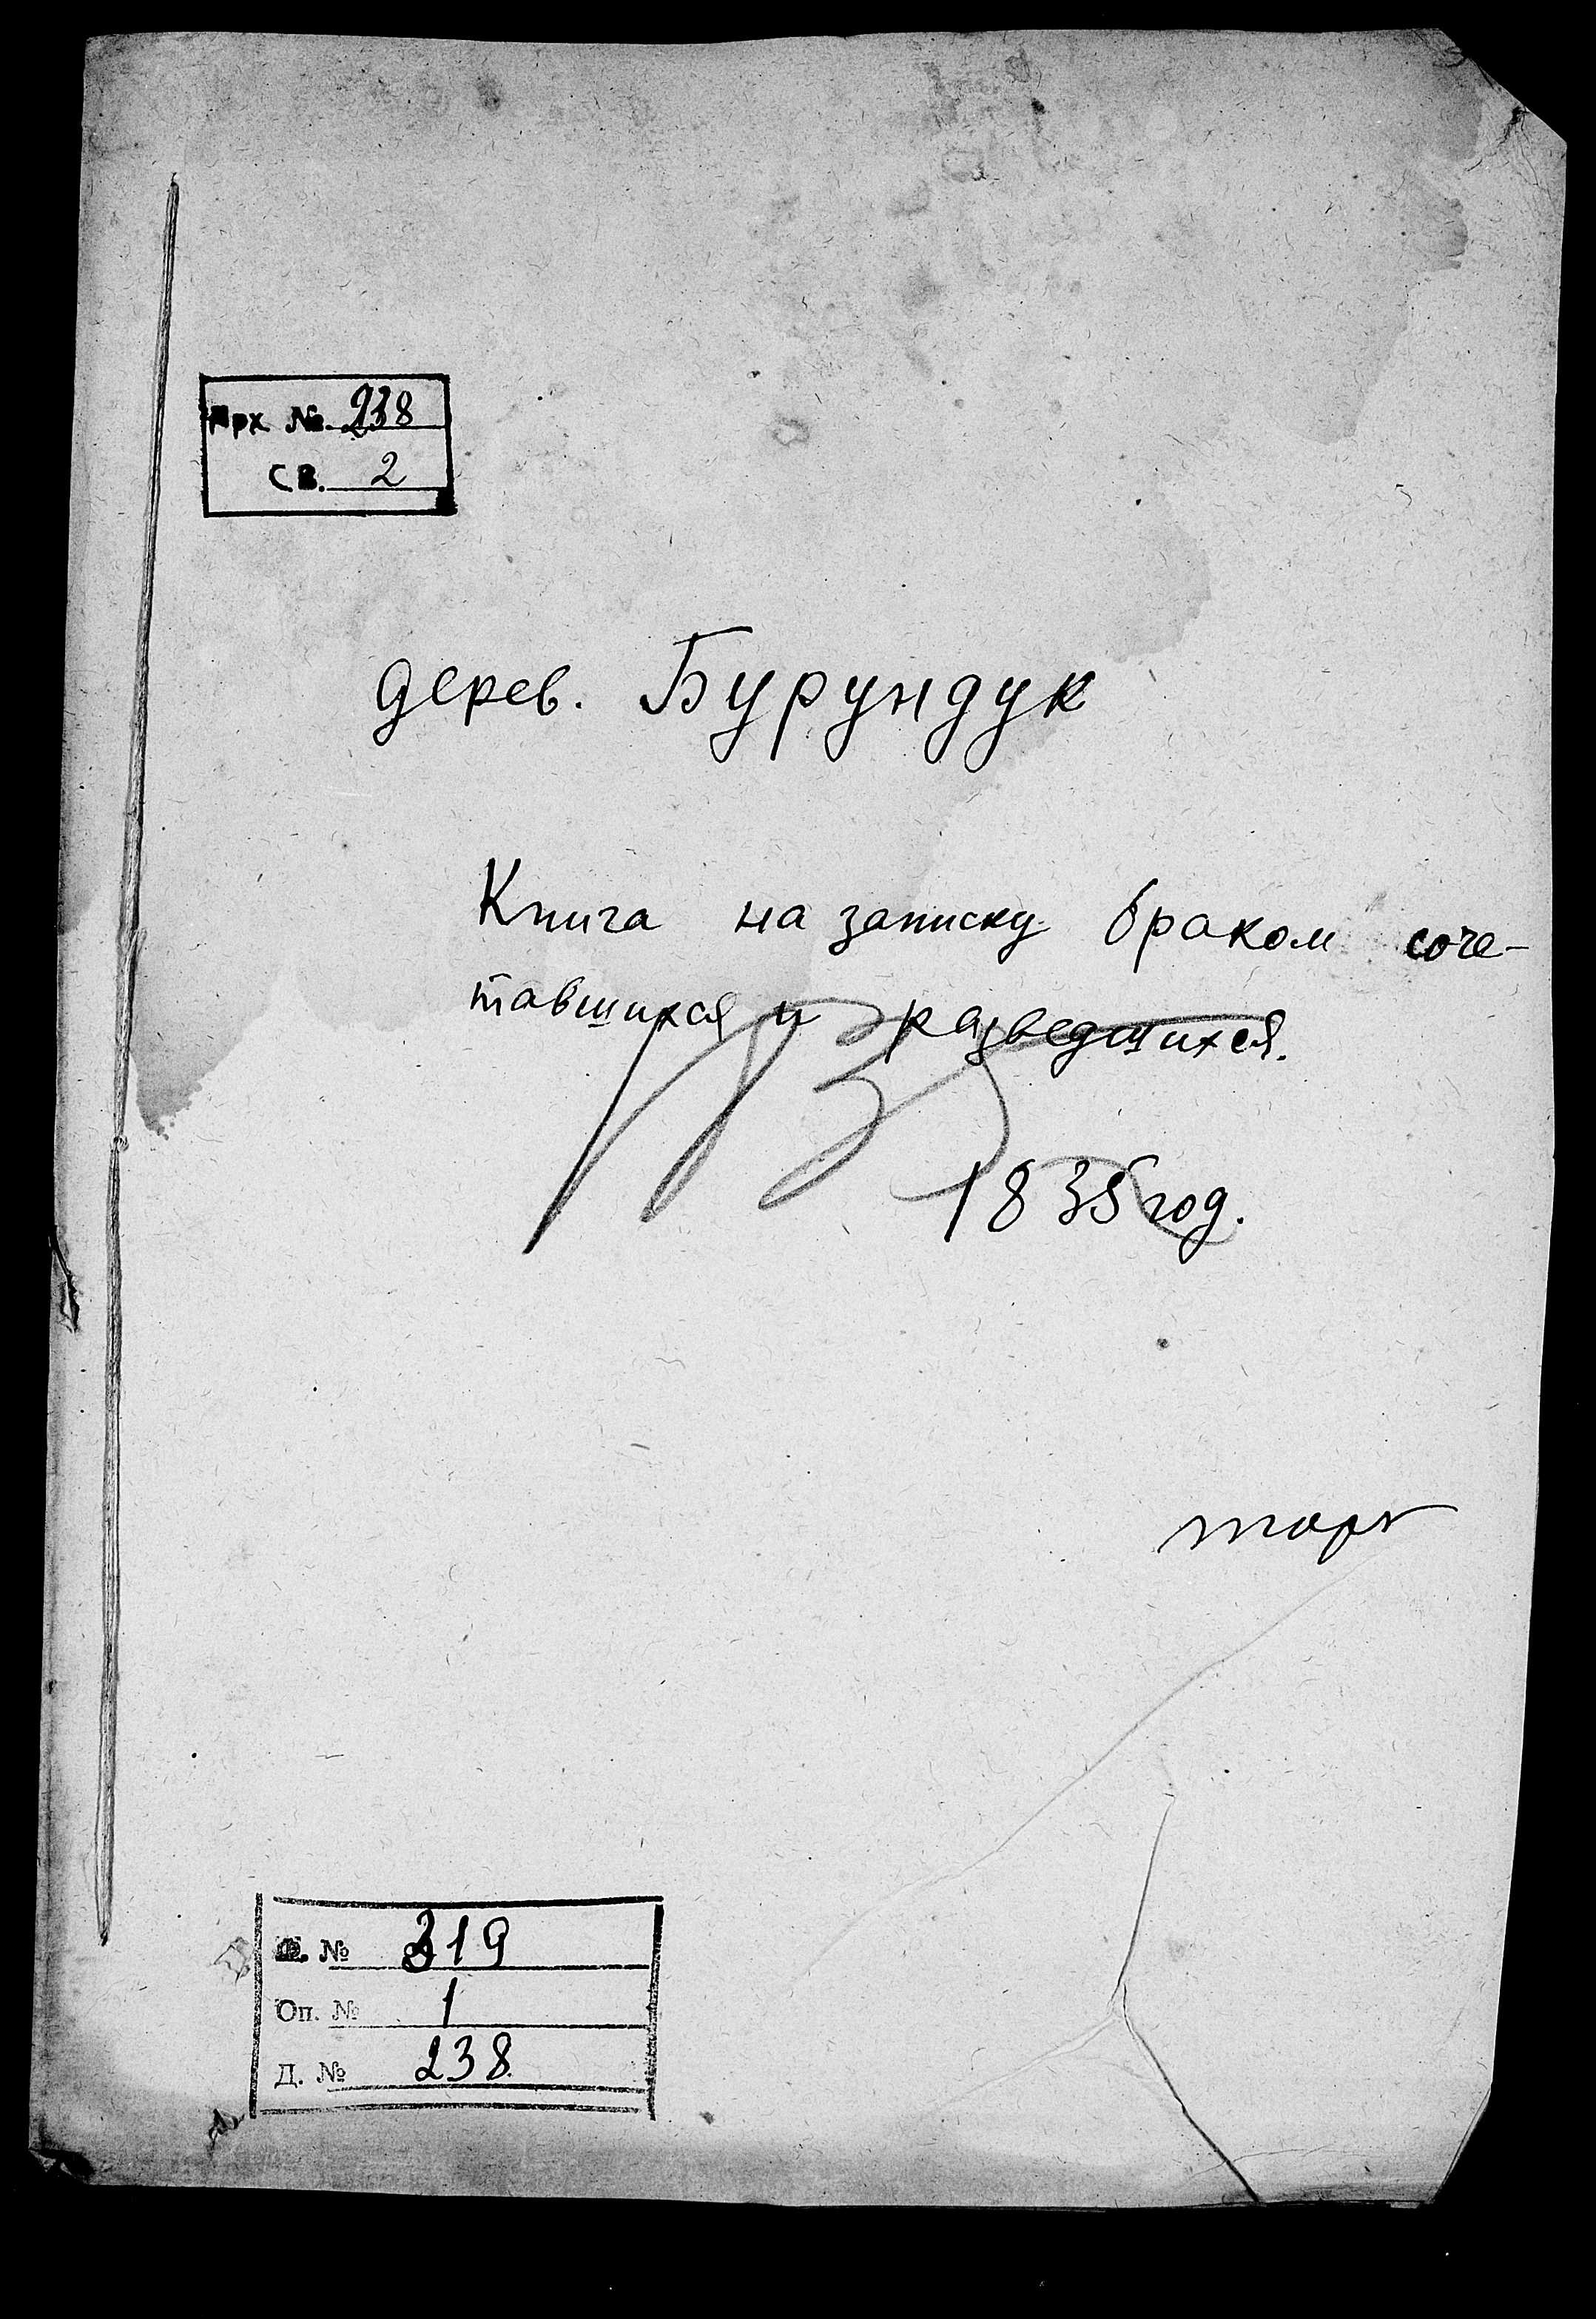 Арх № 238
св. 2
дерев. Бурундук
Книга на записку браком соче-
тавшихся и разведшихся.
1835 год.
Ф. № 319
Оп. № 1
Д. № 238